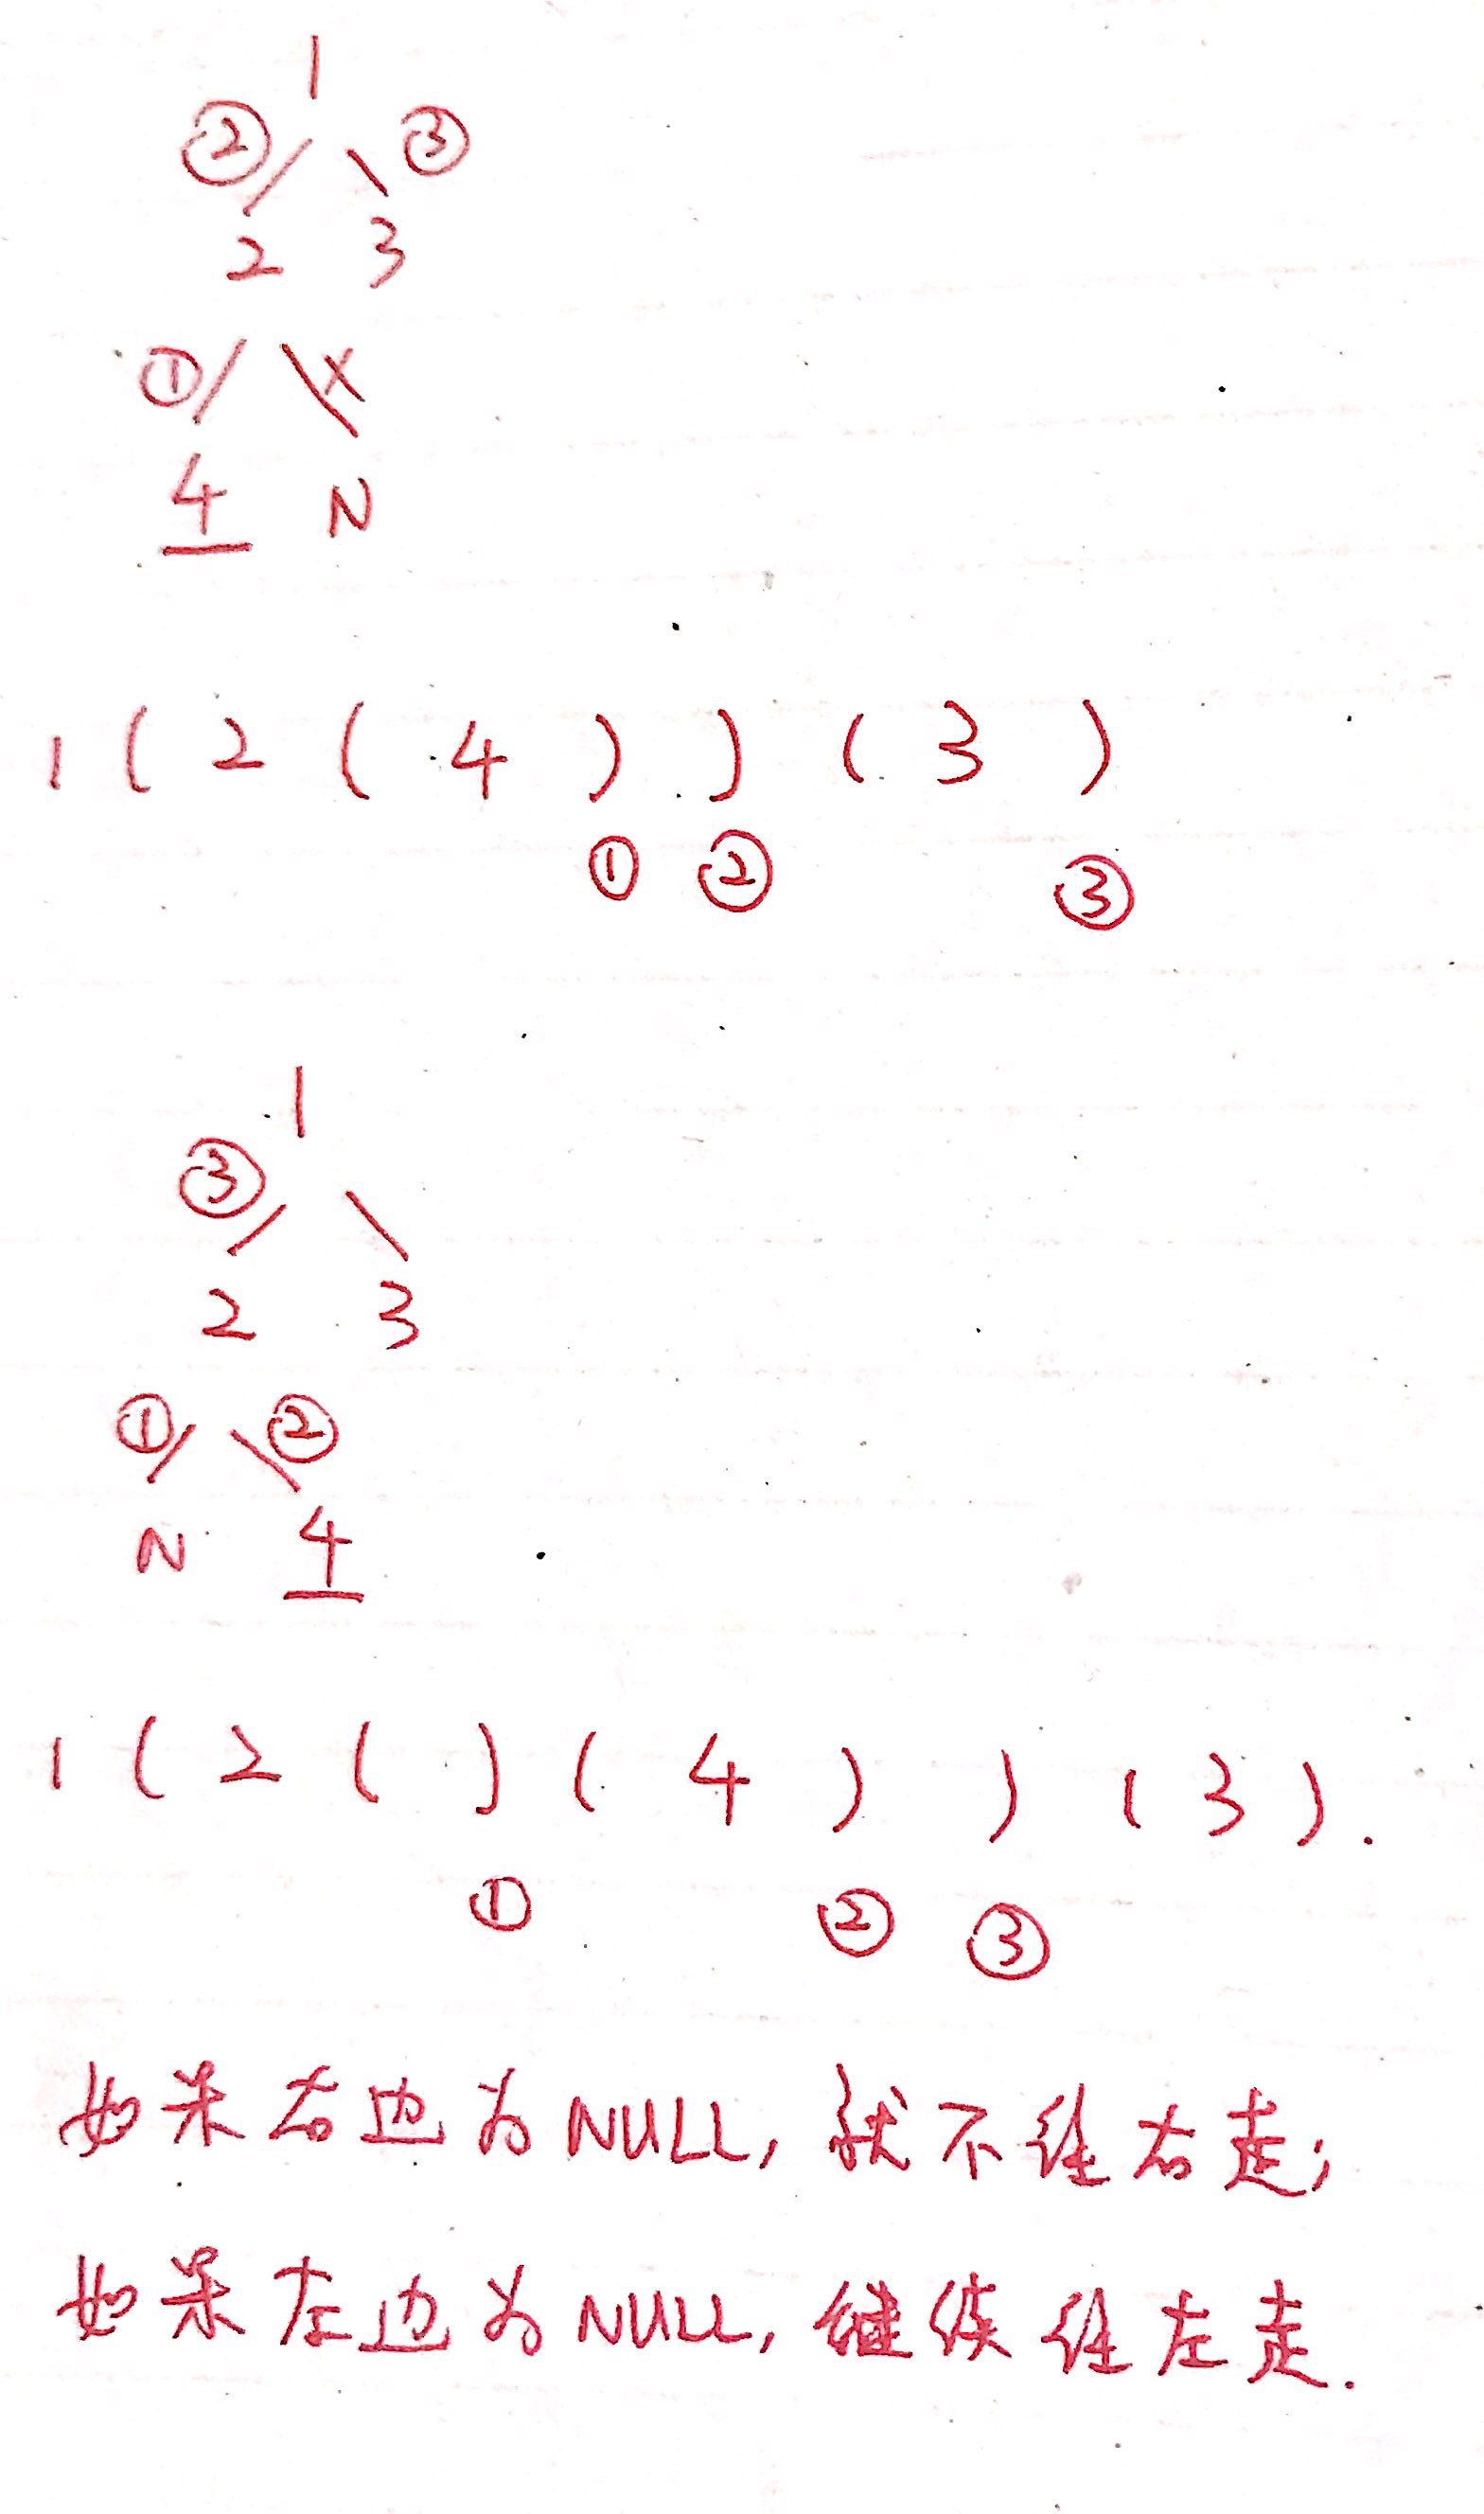 1
② / \ ③
2 3
① / \ X
4 N
1 ( 2 ( 4 ) ) ( 3 )
① ② ③
1
③ / \
2 3
① / \ ②
N 4
1 ( 2 ( ) ( 4 ) ) ( 3 ) .
① ② ③
如果右边为NULL, 就不往右走;
如果左边为NULL, 继续往左走.